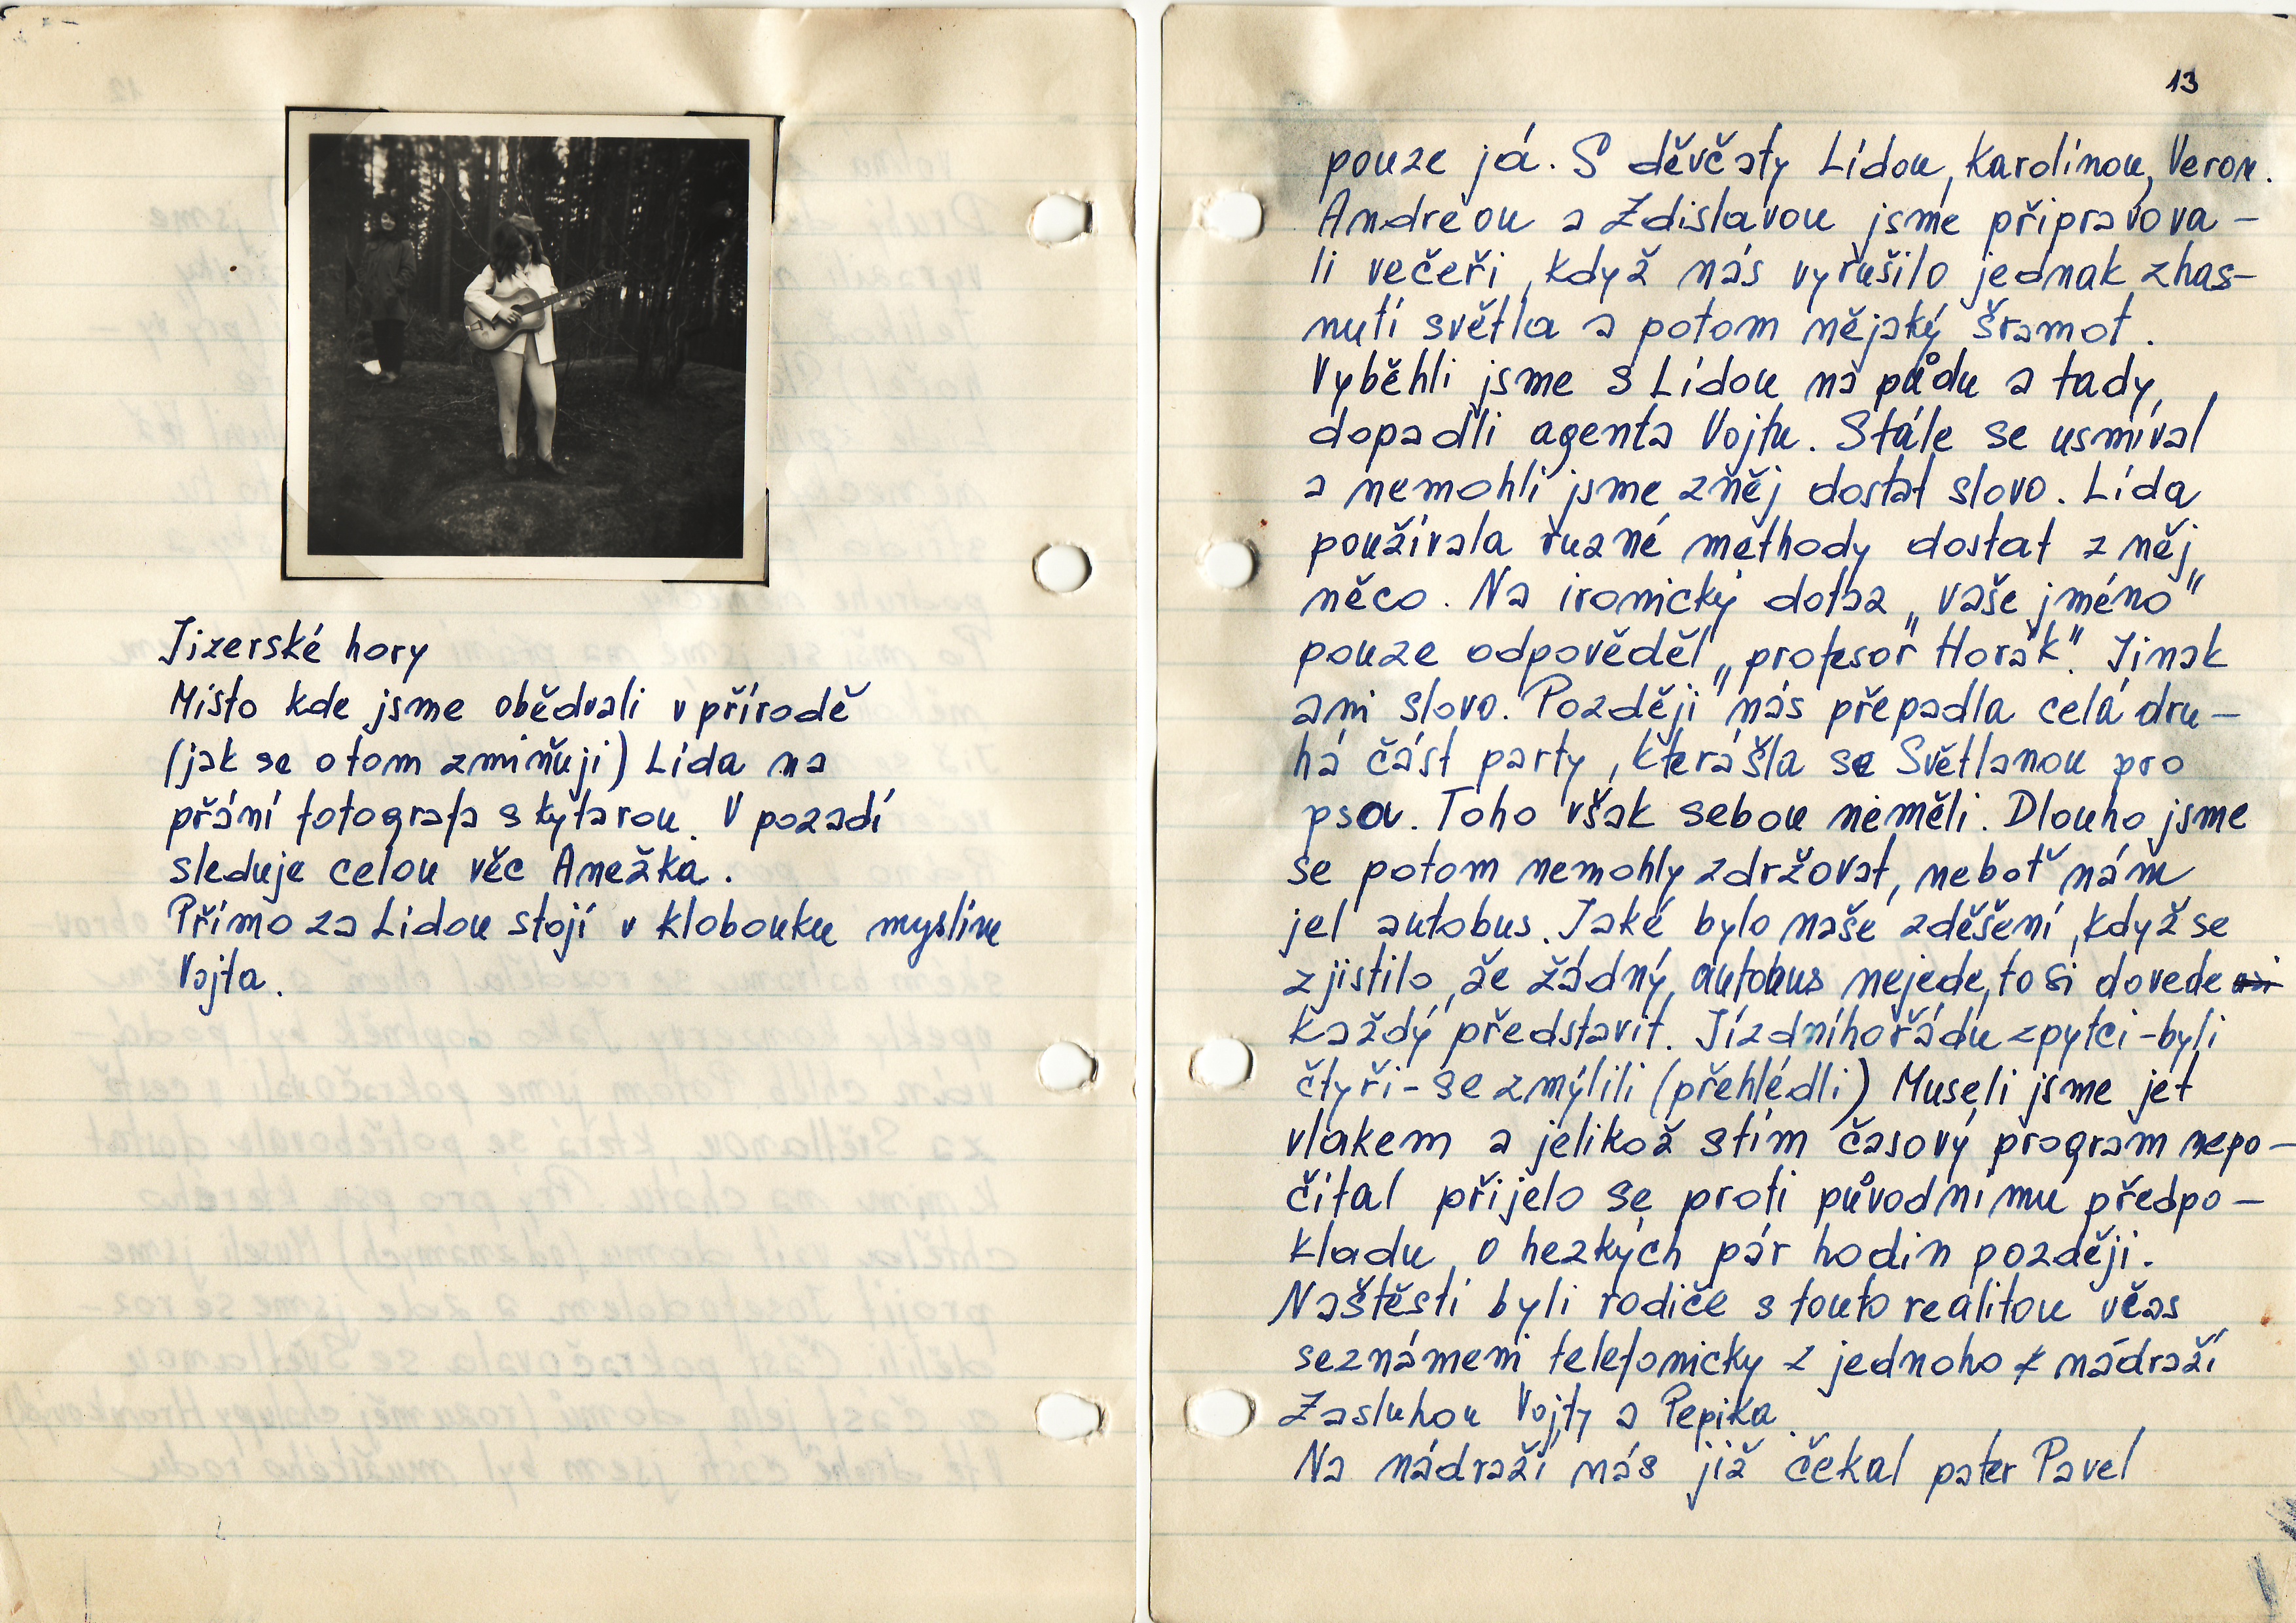 Jizerské hory
Místo kde jsme obědvali v přírodě
(jak se o tom zmiňuji) Lída na
přání fotografa s kytarou. V pozadí
sleduje celou věc Anežka.
Přímo za Lidou stojí v klobouku myslím
Vojta.
13
pouze já. S děvčaty Lídou, Karolínou, Veron.
Andreou a Zdislavou jsme připravova-
li večeři, když nás vyrušilo jednak zhas-
nutí světla a potom nějaký šramot.
Vyběhli jsme s Lídou na půdu a tady,
dopadli agenta Vojtu. Stále se usmíval
a nemohli jsme z něj dostat slovo. Lída
používala ruzné methody dostat z něj
něco. Na ironický dotaz „vaše jméno"
pouze odpověděl „profesor Horák". Jinak
ani slovo. Později nás přepadla celá dru-
há část party, která šla se Světlanou pro
psa. Toho však sebou neměli. Dlouho jsme
se potom nemohly zdržovat, neboť nám
jel autobus. Jaké bylo naše zděšení, když se
zjistilo, že žádný autobus nejede, to si dovede
každý představit. Jízdního řádu zpytci - byli
čtyři - se zmýlili (přehlédli) Museli jsme jet
vlakem a jelikož s tím časový program nepo-
čítal přijelo se proti původnímu předpo-
kladu o hezkých pár hodin později.
Naštěstí byli rodiče s touto realitou včas
seznámeni telefonicky z jednoho nádraží
Zasluhou Vojty a Pepika.
Na nádraží nás již čekal pater Pavel